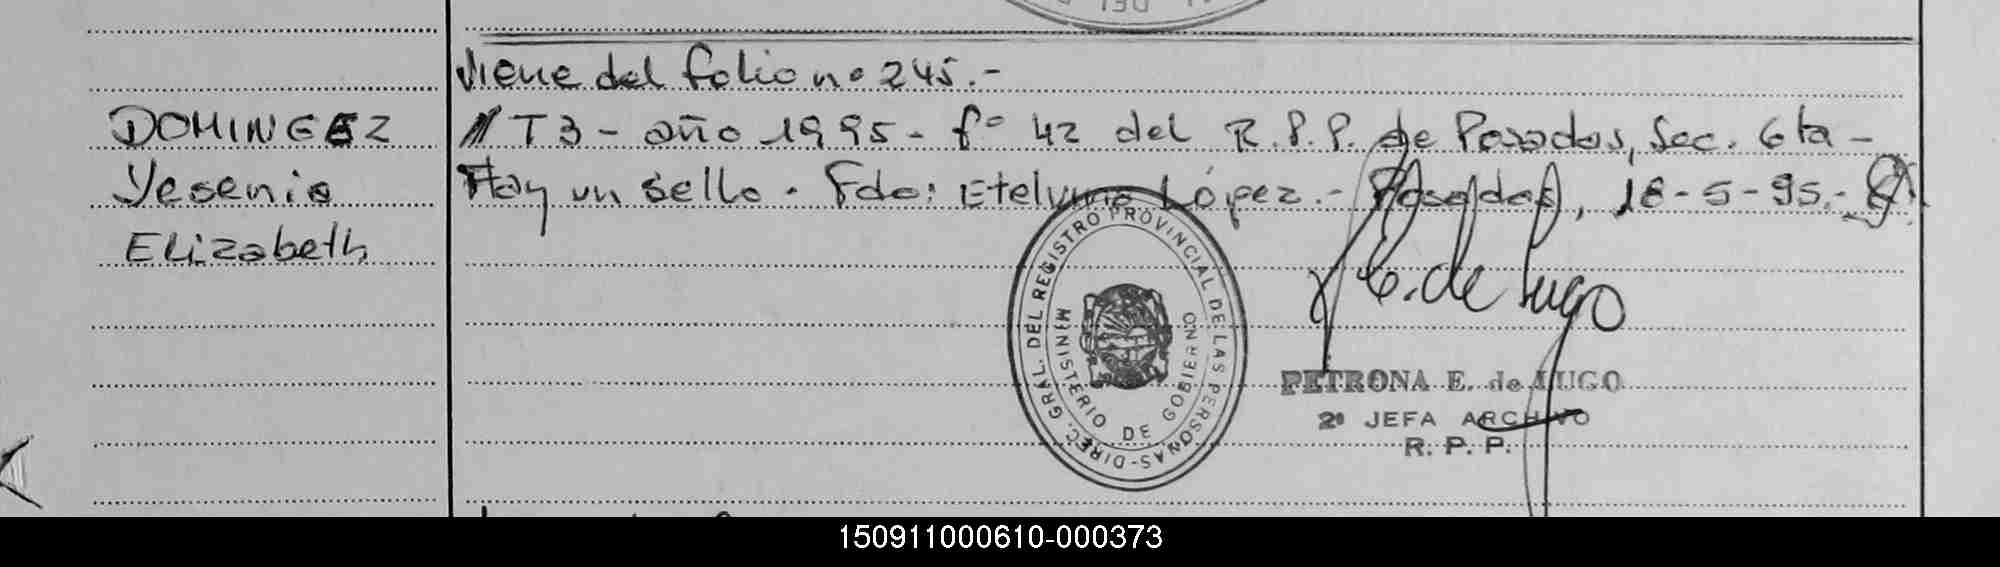 Viene del folio nº 245.-
DOMINGEZ
Yesenia
Elizabeth
T3 - año 1995 - fº 42 del R.P.P. de Posadas, Sec. 6ta -
Hay un sello. Fdo: Etelvina López.- Posadas, 18-5-95.-
DIREC. GRAL. DEL REGISTRO PROVINCIAL DE LAS PERSONAS-
MINISTERIO DE GOBIERNO
E. de Lugo
PETRONA E. de LUGO
2º JEFA ARCHIVO
R. P. P.
150911000610-000373